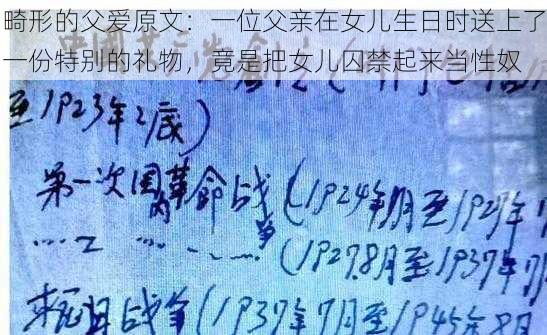 畸形的父爱原文：一位父亲在女儿生日时送上了
一份特别的礼物，竟是把女儿囚禁起来当性奴
至1923年2底)
第一次国内革命战(1924年1月至1927年
(1927.8月至1937年7
抗日战争(1937年7月至1945年8月